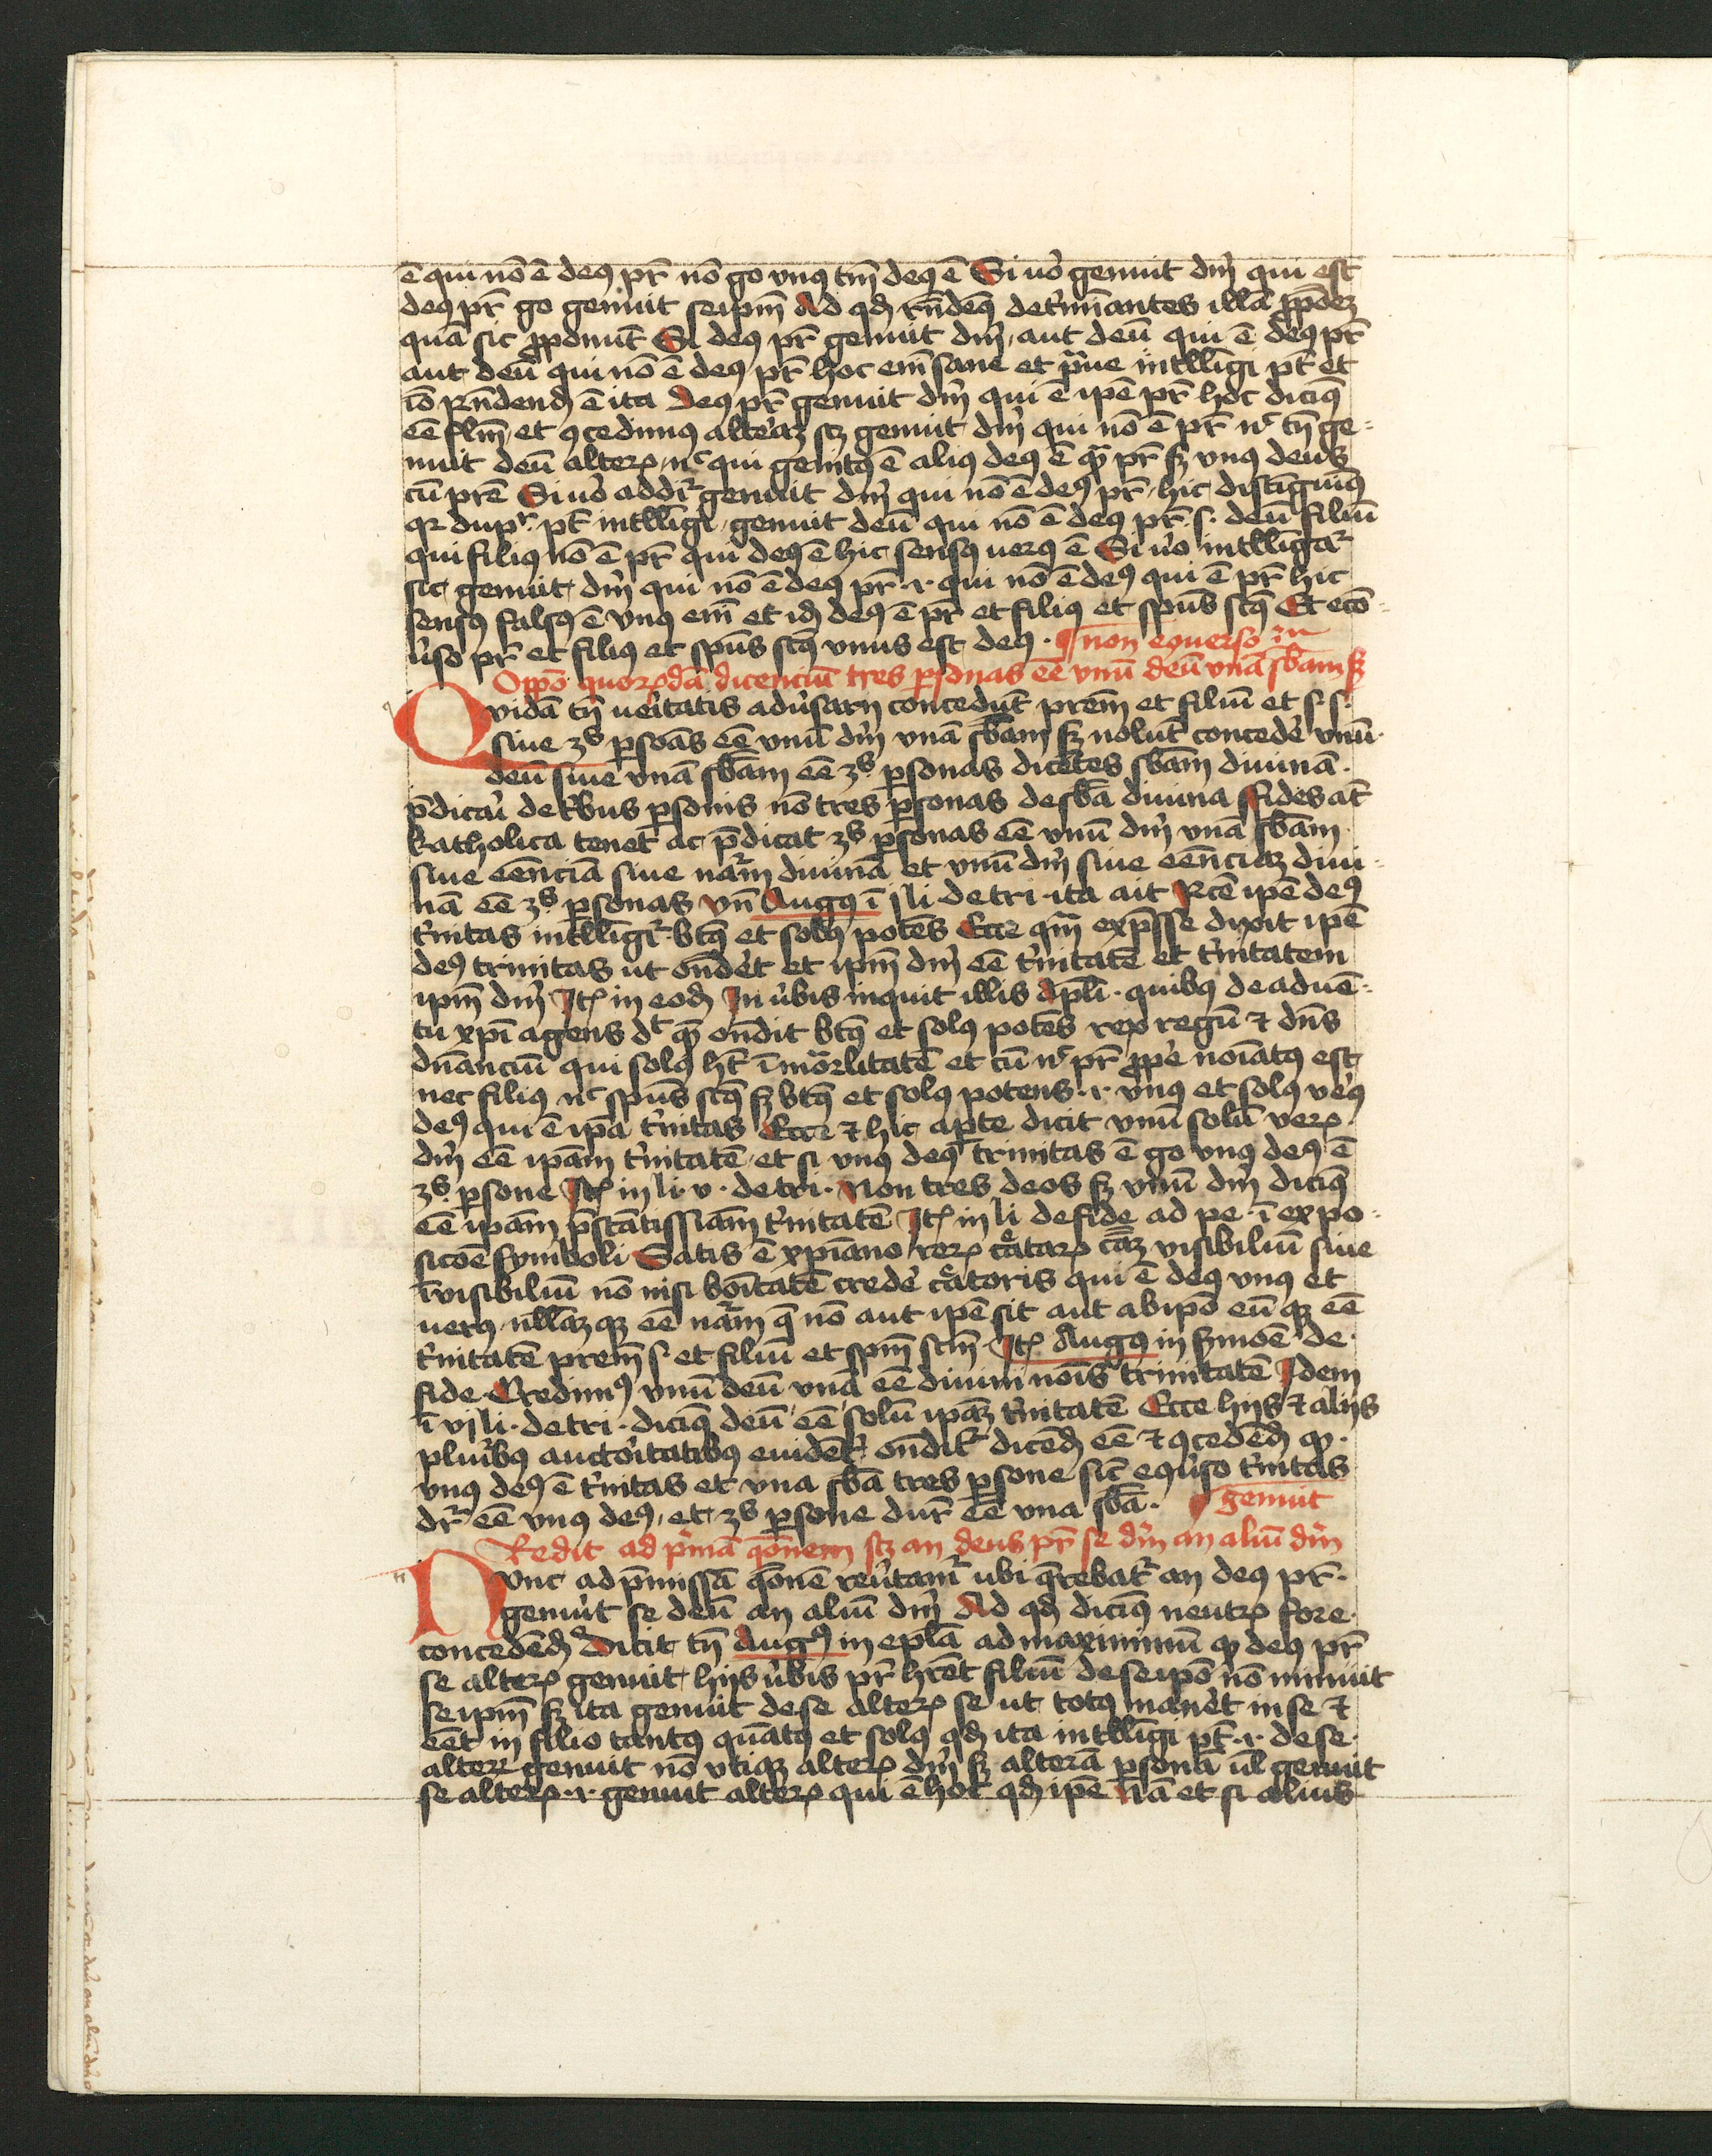 ē qui nō ē deꝰ pr̄ nō go vnꝰ tm̄ deꝰ ē Si uo genuit dm̄ qui est
deꝰ pr̄ go genuit seipm̄ Ad qđ rn̄demꝰ det'minantes illā
quā sic ꝓponūt Si deꝰ pr̄ genuit dm̄ aut deū qui ē deꝰ pr̄
aut deū qui nō ē deꝰ pr̄ hoc em̄ sane et praue intllīgi pt̄ et
io rn̄dend ē ita Deꝰ pr̄ genuit dm̄ qui ē ipē pr̄ hoc dicimꝰ
eē flm̄ et ꝯcedimus alteꝝ sꝫ genuit dm̄ qui nō ē pr̄ nc tn̄ ge-
nuit deū alterꝝ nc qui genitꝰ ē aliꝰ deꝰ ē qm̄ pr̄ sꝫ vnꝰ deus
cū prē Si uo addr̄ genuit dm̄ qui nō ē deꝰ pr̄ hic distīguimꝰ
qr dupr pt̄ intllīgi genuit deū qui nō ē deꝰ pr̄ .s. deū filiū
qui filiꝰ nō ē pr̄ qui deꝰ ē hic sensꝰ uerꝰ ē Si uo intllīgar̄
sic genuit dm̄ qui nō ē deꝰ pr̄ .i. qui nō ē deꝰ qui ē pr̄ hic
sensꝰ falsꝰ ē vnꝰ em̄ et idē deꝰ ē pr̄ et filiꝰ et spūs scꝰ Et ecō-
u'so pr̄ et filiꝰ et spūs scꝰ vnus est deꝰ . non eouerso
Oppō quorꝝdā dicenciū tres ꝑsonas eē vnū deū vnā sbām sꝫ
Quidā tn̄ ueritatis adu'sarij concedūt prem̄ et filiū et s. s.
siue 3s ꝑsonas eē vnū dm̄ vnā sbām sꝫ nolūt concede' vnū
deū siue vnā sbām eē 3s ꝑsonas dicētes sbām diuinā
p̄dicari de t'bus ꝑsonis nō tres ꝑsonas de sbā diuina Fides at̄
katholica tenet ac p̄dicat 3s ꝑsonas eē vnū dm̄ vnā sbām
siue eēnciā siue nat'm diuinā et vnū dm̄ siue eēnciaꝫ diui-
nā eē 3s ꝑsonas vn̄ Augꝰ ī j li. de tri. ita ait Rcē ipē deꝰ
t'nitas intllīgr̄ btꝰ et solꝰ potēs Ecce qm̄ exp̄sse dixit ipē
deꝰ trinitas ut on̄dēt et ipm̄ dm̄ eē t'nitatē et t'nitatem
ipm̄ dm̄ Itꝫ in eodē In u'bis inquit illis apl̄i . quibꝰ de aduē-
tu xpi agens dt qm̄ on̄dit btꝰ et solꝰ potēs rex regū ⁊ dn̄s
dn̄anciū qui solꝰ ht̄ īmorlitatē et cū nc pr̄ ꝓpe noiatꝰ est
nec filiꝰ nc spūs scꝰ sꝫ btꝰ et solꝰ potens .i. vnꝰ et solꝰ verꝰ
deꝰ qui ē ipā t'nitas Ecce ⁊ hic aꝑte dicit vnū solū verꝝ
dm̄ eē ipām t'nitatē et si vnꝰ deꝰ trinitas ē go vnꝰ deꝰ ē
3s ꝑsone Itꝫ in li. v. de tri. Non tres deos sꝫ vnū dm̄ dicimꝰ
eē ipām p̄stātissimā t'nitatē Itꝫ in li de fide ad pe. ī expo-
sicōe symboli Satis ē xpiano rerꝝ c'atarꝝ cāꝫ visibiliū siue
īvisibiliū nō nisi bonitatē crede' c'atoris qui ē deꝰ vnꝰ et
uerꝰ nullāqꝫ eē nat'm q̄ nō aut ipē sit aut ab ipō eūqꝫ eē
t'nitatē prem̄ s. et filiū et spm̄ scm̄ Itꝫ Augꝰ in s'mōe de
fide Credimꝰ vnū deū vnā eē diuini nois trinitatē Idem
ī vj li. de tri. dicimꝰ deū eē solū ipāꝫ t'nitatē Ecce hijs ⁊ alijs
pluribꝰ auctoritatibꝰ euident' ondit̄ dicēd eē ⁊ ꝯcedēd qꝫ
vnꝰ deꝰ ē t'nitas et vna sbā tres ꝑsone sic̄ eu'so t'nitas
dr̄ eē vnꝰ deꝰ et 3s ꝑsone dur̄ eē vna sbā . genuit
Redit ad p'mā qōnem sꝫ an deus pr̄ se dm̄ an aliū dm̄
Nunc ad p̄missā qōnē reu'tam̄ ubi q̄rebat' an deꝰ pr̄
genuit se deū an aliū dm̄ Ad qđ dicimꝰ neutrꝝ fore
concedēd Dicit tn̄ Augꝰ in epl̄a ad maximinū qꝫ deꝰ pr̄
se alterꝝ genuit hijs u'bis pr̄ ht̄ filiū de se ipō nō minuit
se ipm̄ sꝫ ita genuit de se alterꝝ se ut totꝰ manēt in se ⁊
eēt in filio tantꝰ quātꝰ et solꝰ qđ ita intllīgi pt̄ .i. de se
alterꝝ genuit nō vtiqꝫ alterꝝ dm̄ sꝫ alterā ꝑsonā ul genuit
se alterꝝ .i. genuit alterꝝ qui ē hoc qđ ipē nā et si alius